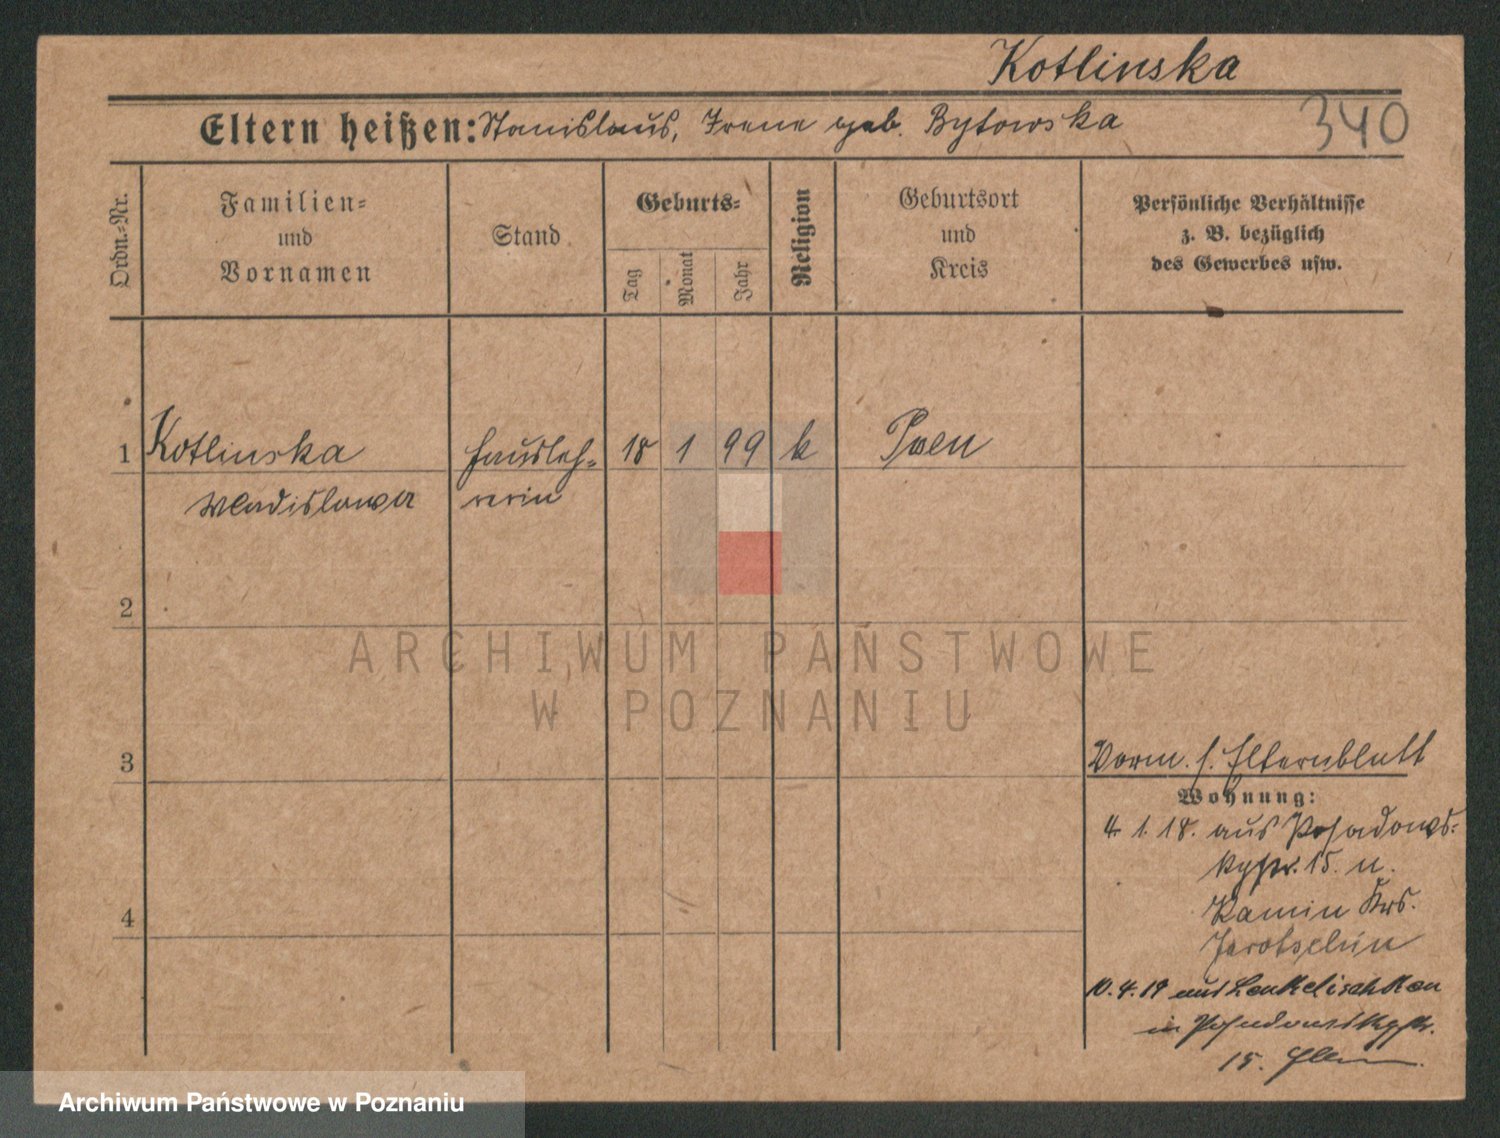 Kotlinska
340
Eltern heißen: Stanislaus, Irene geb. Bytowska
Ordn.-Nr.
Familien-
und
Vornamen
Stand
Geburts-
Tag
Monat
Jahr
Religion
Geburtsort
und
Kreis
Persönliche Verhältnisse
z. B. bezüglich
des Gewerbes usw.
1 Kotlinska Hausleh- 18 1 99 k Posen
Wladislawa rerin
2
ARCHIWUM PAŃSTWOWE
W POZNANIU
3
Vorm. s. Elternblatt
Wohnung:
4. 1. 18. aus Posadows-
kystr. 15. n.
Kamin Krs.
Jarotschin
4
10. 4. 19 aus
in Posadowskystr.
15.
Archiwum Państwowe w Poznaniu